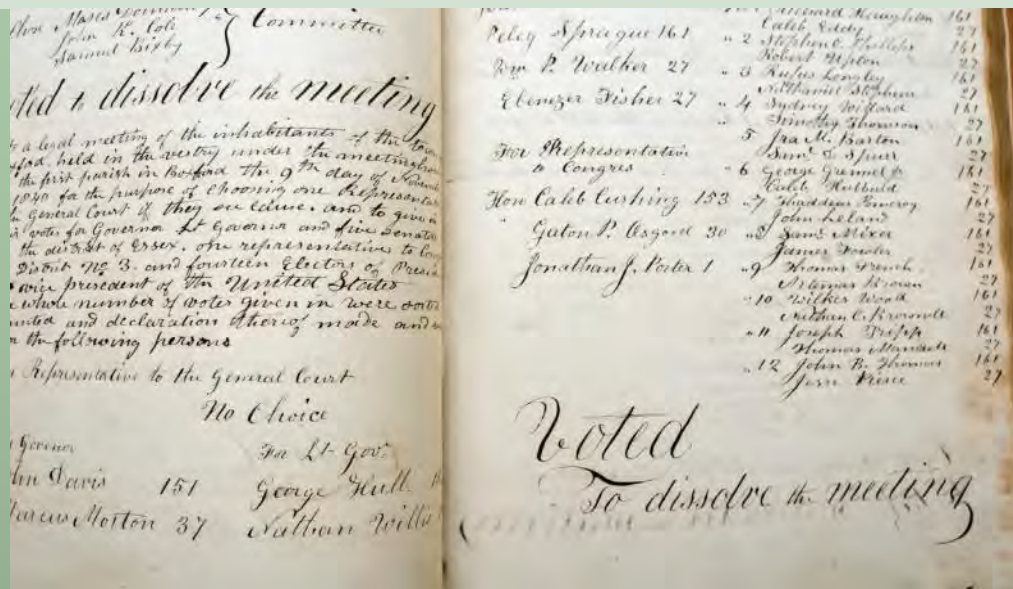 John K. Cole
Samuel Bixby
Committee
to dissolve the meeting
a legal meeting of the inhabitants of the
held in the vestry under the
the first parish in Boxford the 9th day of
1840 for the purpose of choosing one
General Court if they see cause, and to give in
votes for Governor Lt Governor and five
the district of Essex, one representative to
District No 3. and fourteen Electors of
vice president of the United States
whole number of votes given in were
and declaration thereof made and
the following persons
Representative to the General Court
No Choice
Governor
Davis 151
Morton 37
For Lt Gov.
George Hull
Nathan Willis
Peleg Sprague 161
Wm P. Walker 27
Ebenezer Fisher 27
For Representative
to Congres
Hon Caleb Cushing 153
Gaton P. Osgood 30
Jonathan J. Porter 1
161
Caleb Eddy 27
" 2 Stephen C. Phillips 161
Robert Upton 27
" 3 Rufus Longley 161
Nathaniel Stephens 27
" 4 Sydney Willard 161
Timothy Thomson 27
5 Ira M. Barton 161
Saml 27
" 6 George Grennel jr 161
Caleb Hubbuld 27
" 7 Thaddeus Pomeroy 161
John Leland 27
" 8 Saml Mixer 161
James Fowler 27
" 9 Thomas French 161
Artemas Brown 27
" 10 Wilkes Wood 161
Nathan C. Brownell 27
" 11 Joseph Tripp 161
Thomas Mandell 27
" 12 John B. Thomas 161
Jesse Pierce 27
Voted
To dissolve the meeting